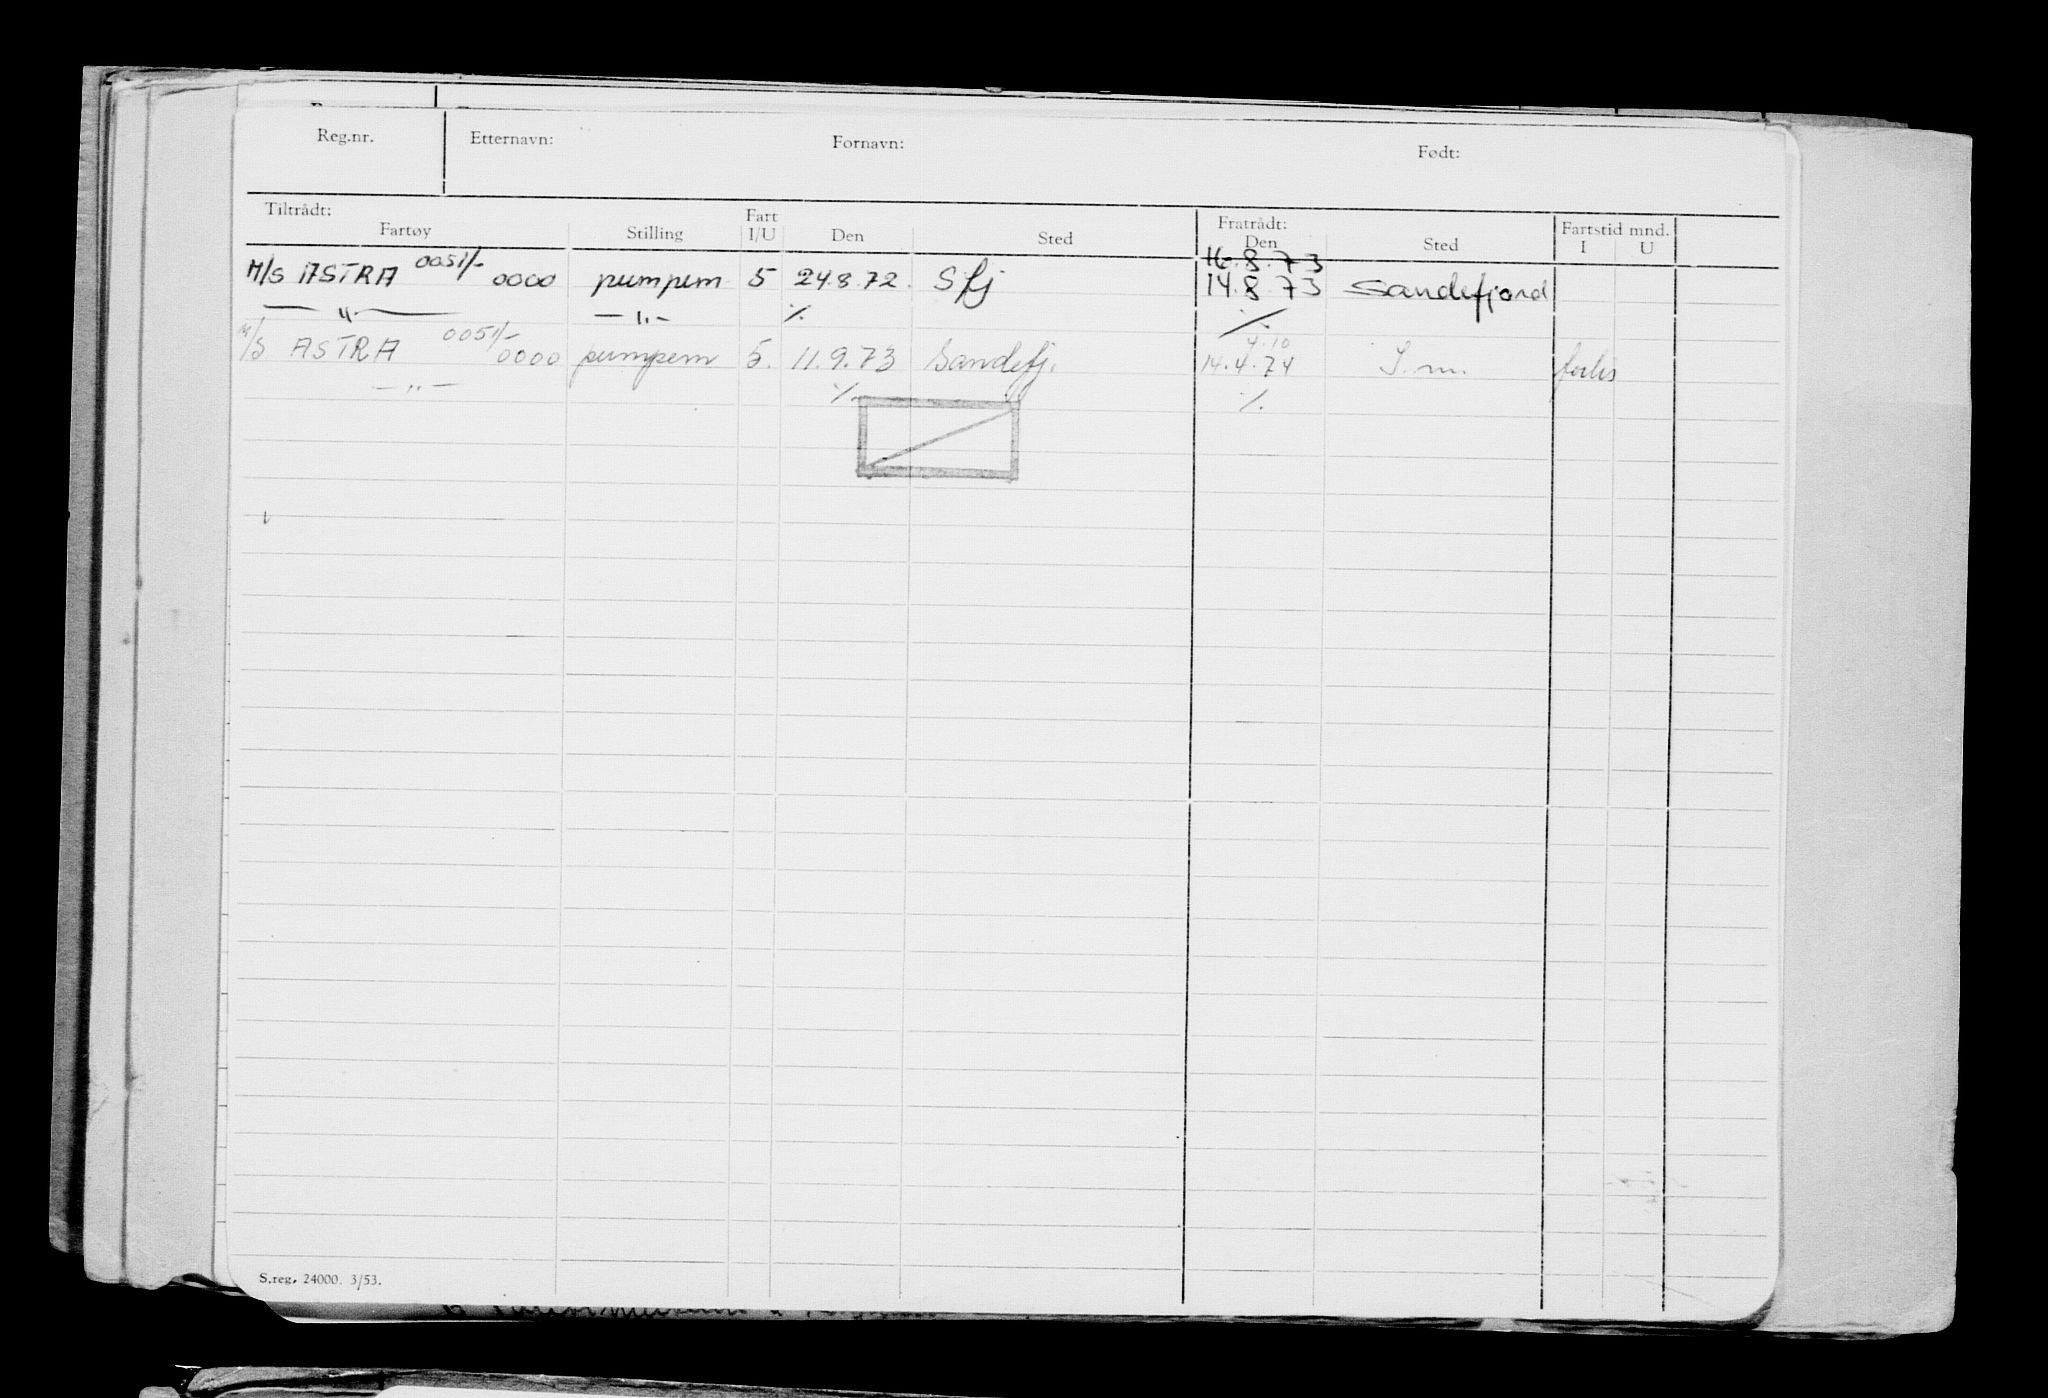 Reg.nr. Etternavn: Fornavn: Født:
Tiltrådt: Fartøy Stilling Fart I/U Den Sted Fratrådt: Den Sted Fartstid mnd. I U
16.8.73
M/S ASTRA 0051/- 0000 pumpem 5 24.8.72. Sfj 14.8.73 Sandefjord
—"— —"— ·/. ·/.
4.10
M/S ASTRA 0051/- 0000 pumpem 5. 11.9.73 Sandefj. 14.4.74 S.m. forlis
—"— ·/. ·/.
S.reg. 24000. 3/53.